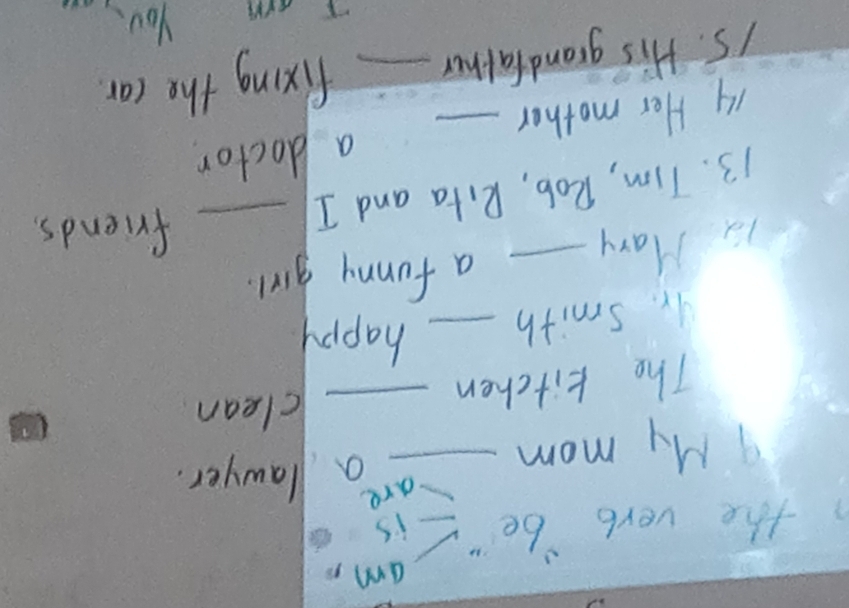 am
the verb "be" is
are
9 My mom ___ a lawyer.
The kitchen ___ clean.
Mr. Smith ___ happy
12 Mary ___ a funny girl.
13. Tim, Rob, Rita and I ___ friends.
14 Her mother ___ a doctor.
15. His grandfather ___ fixing the car.
I am You